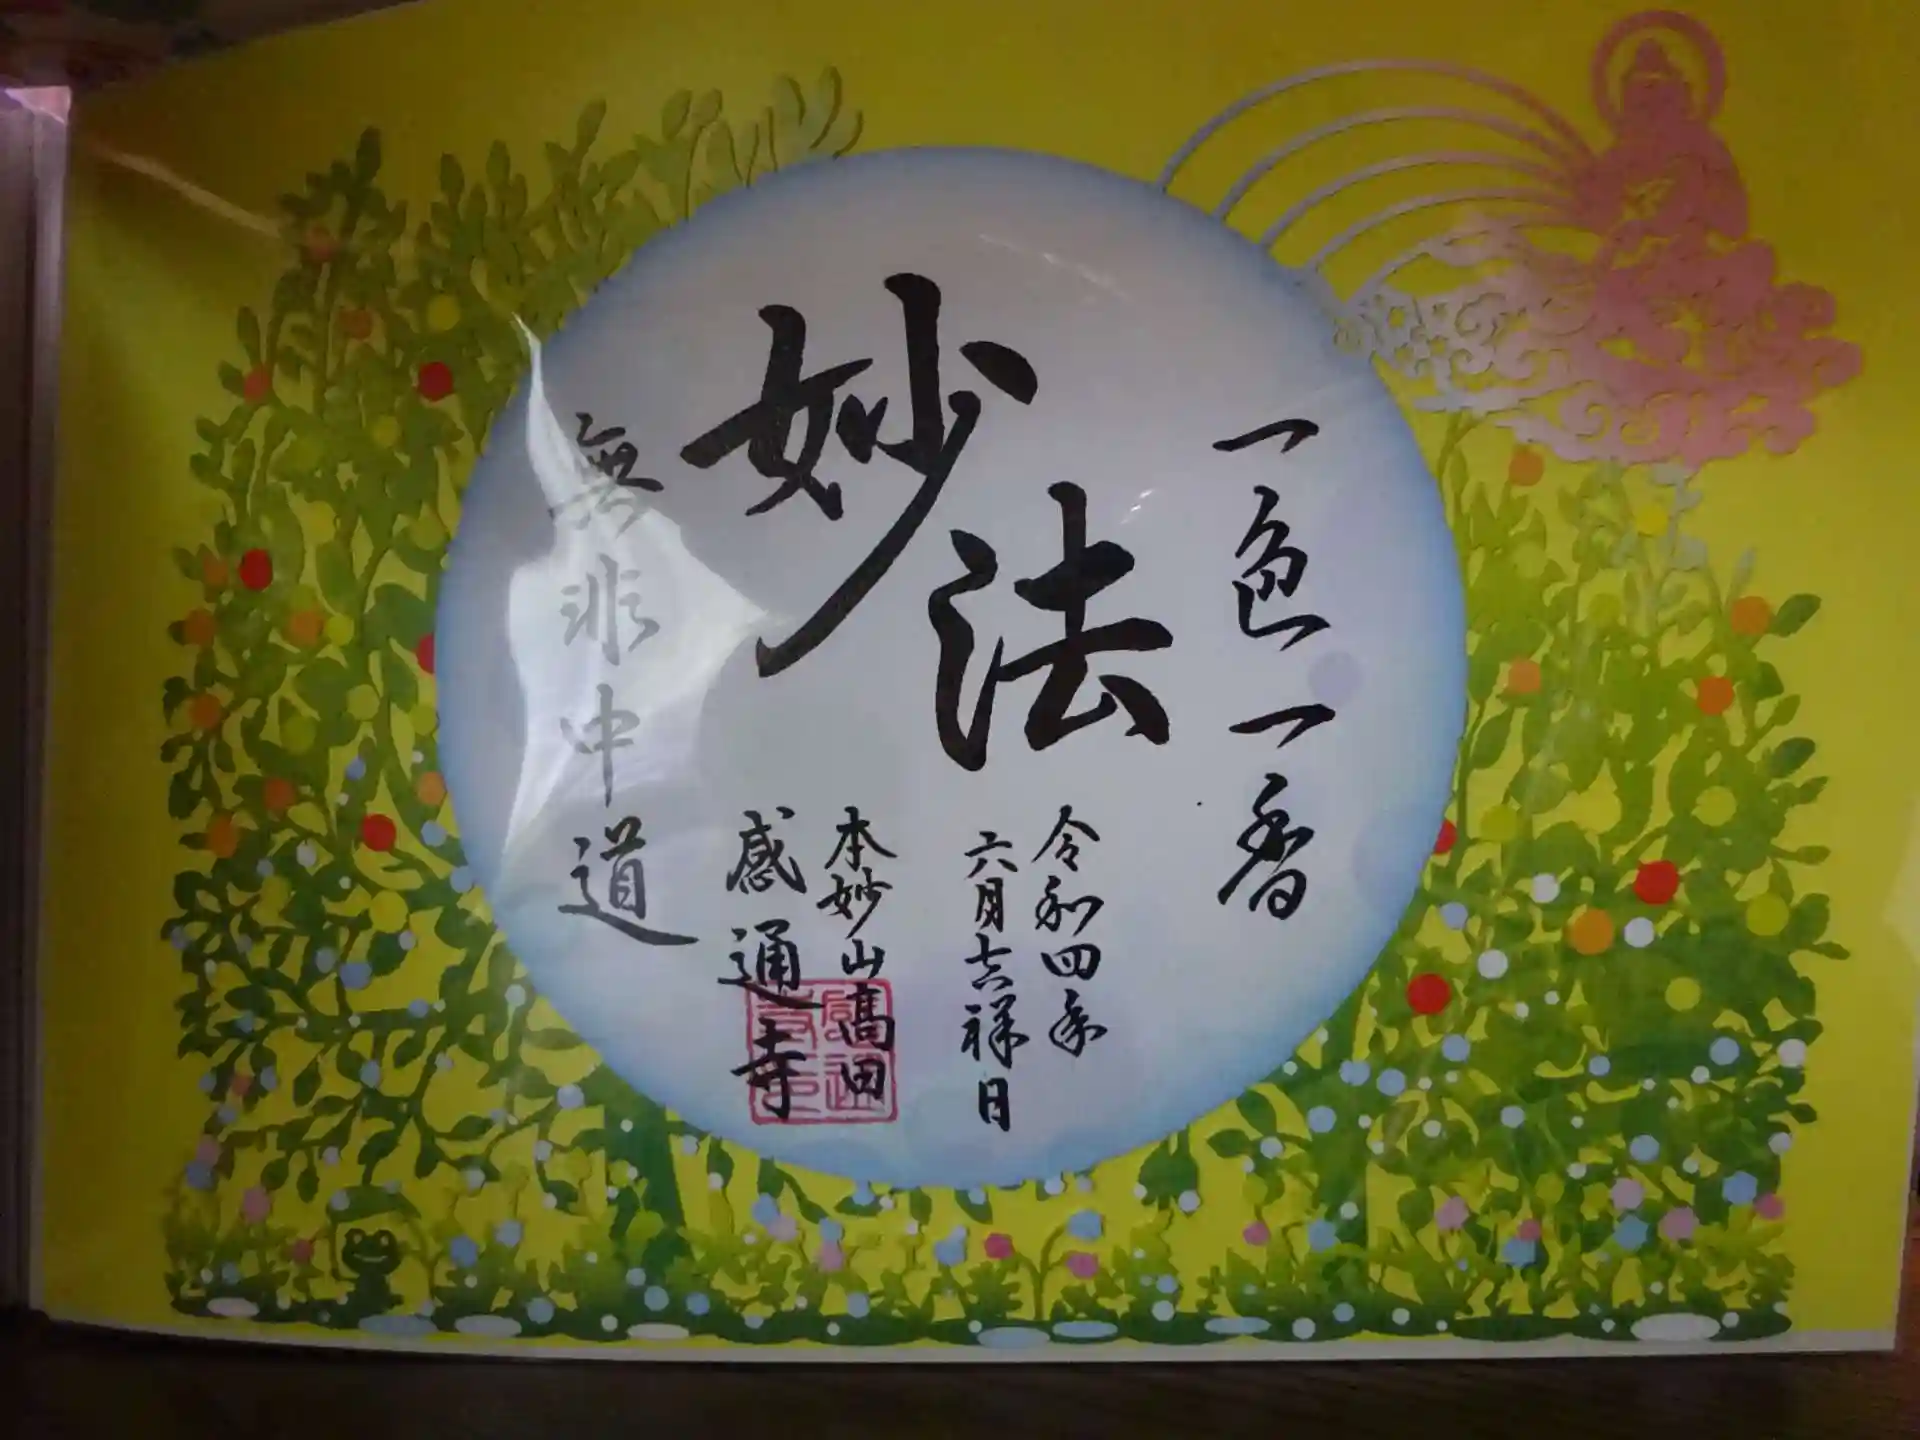 一色一香
妙法
令和四年
六月吉祥日
本妙山高田
感通寺
無非中道